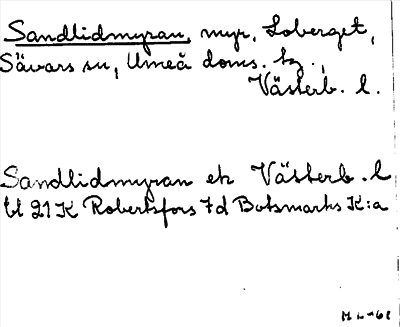 Sandlidmyran, myr, Loberget,
Sävars sn, Umeå doms. tg.,
Västerb. l.
Sandlidmyran ek Västerb. l
bl 21 K Robertsfors 7 d Botsmarks K:a